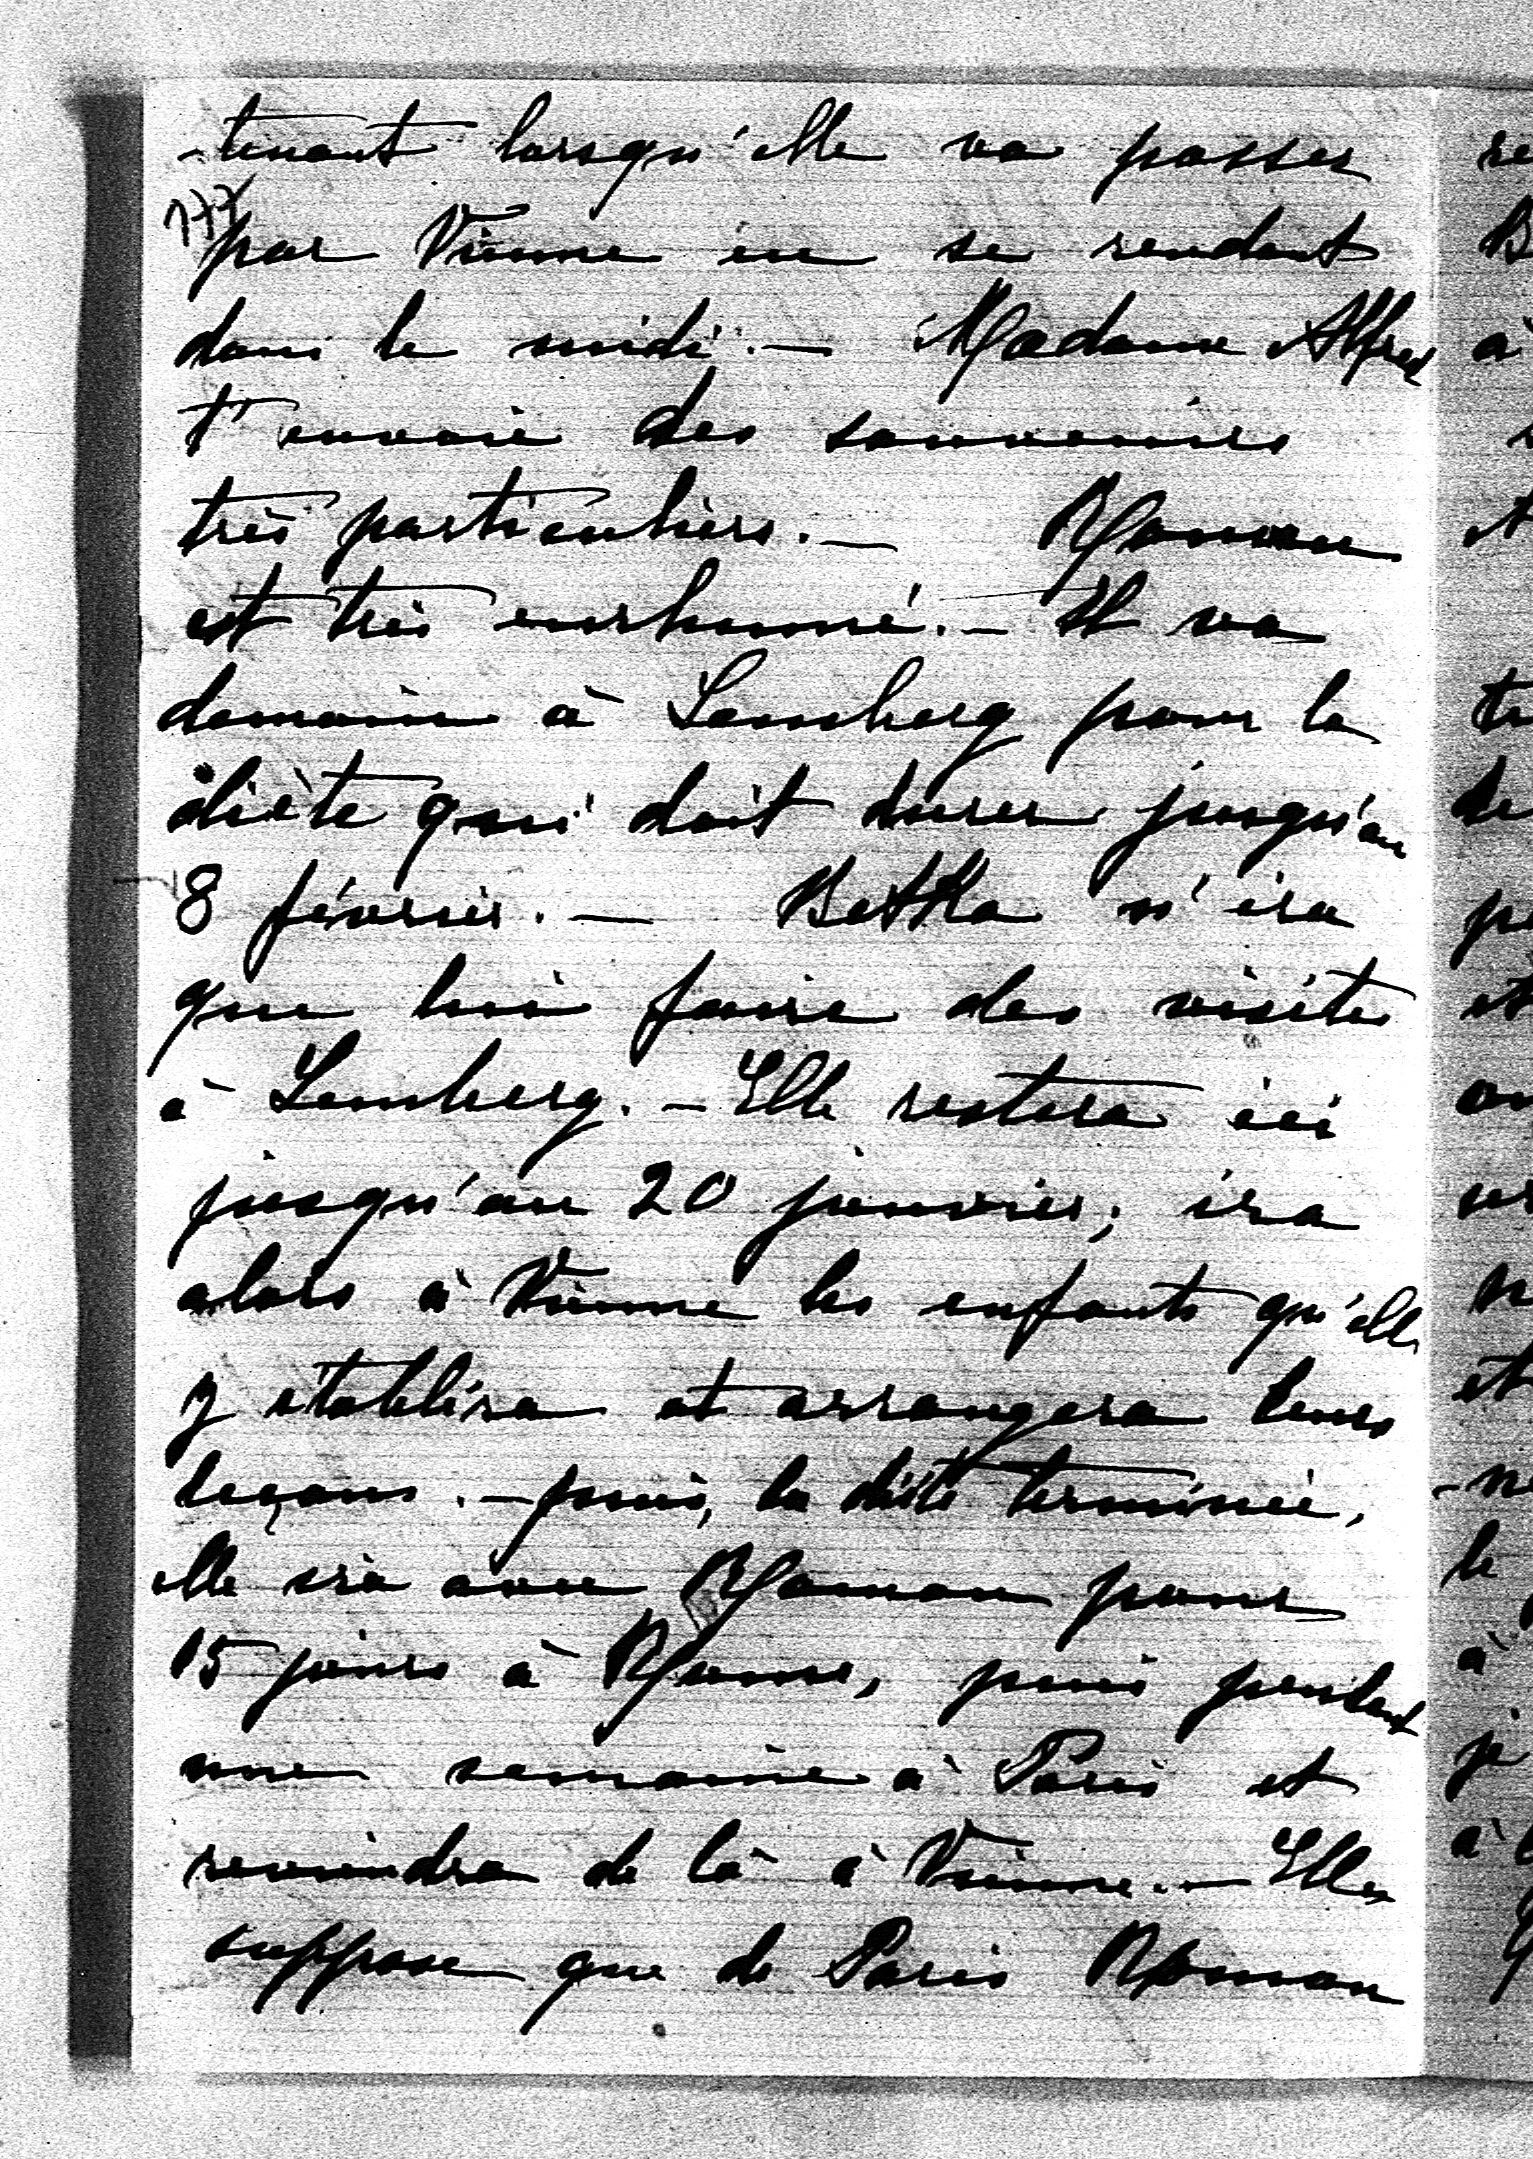 -tenant lorsqu'elle va passer
177
par Vienne en se rendant
dans le midi. — Madame Alfred
t'envoie des souvenirs
très particuliers. — Roman
est très enrhumé. — Il va
demain à Lemberg pour la
diète qui doit durer jusqu'au
8 février. — Betka n'ira
que lui faire des visites
à Lemberg. — Elle restera ici
jusqu'au 20 janvier, ira
alors à Vienne les enfants qu'elle
y établira et arrangera leurs
leçons. — puis, la diète terminée,
elle ira avec Roman pour
15 jours à Rome, puis pendant
une semaine à Paris et
reviendra de là à Vienne. — Elle
suppose que de Paris Roman